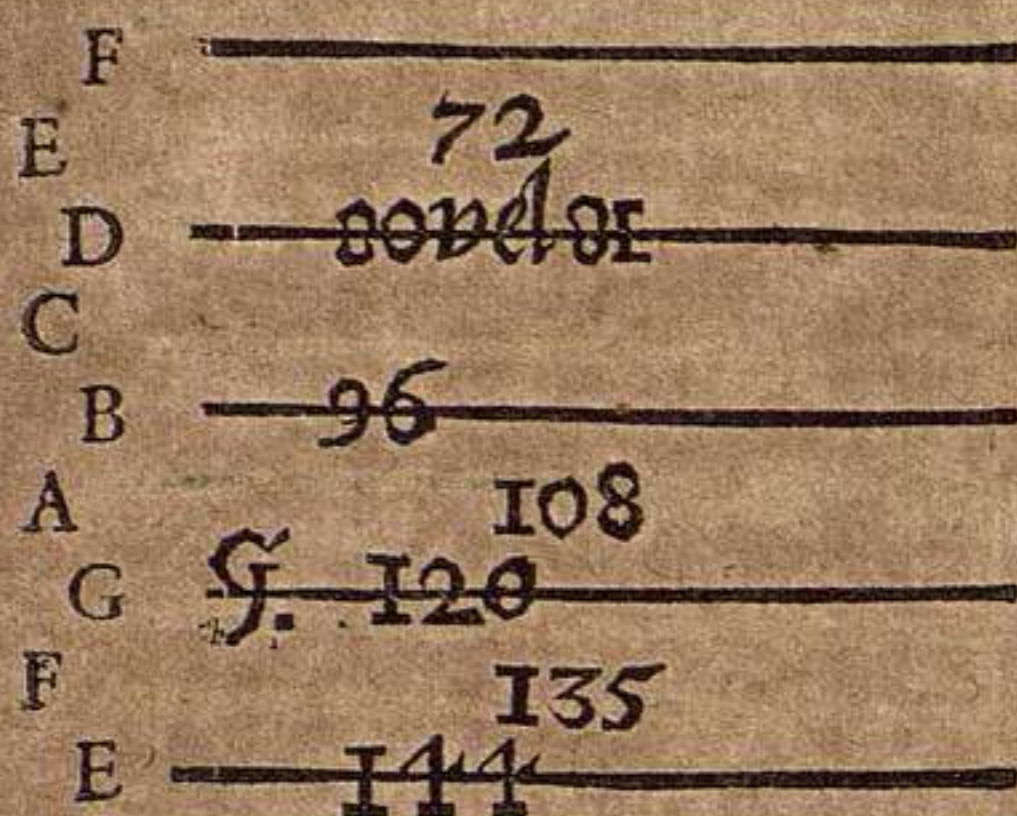 F
E 72
D 80 vel 81
C
B 96
A 108
G G. 120
F 135
E 144